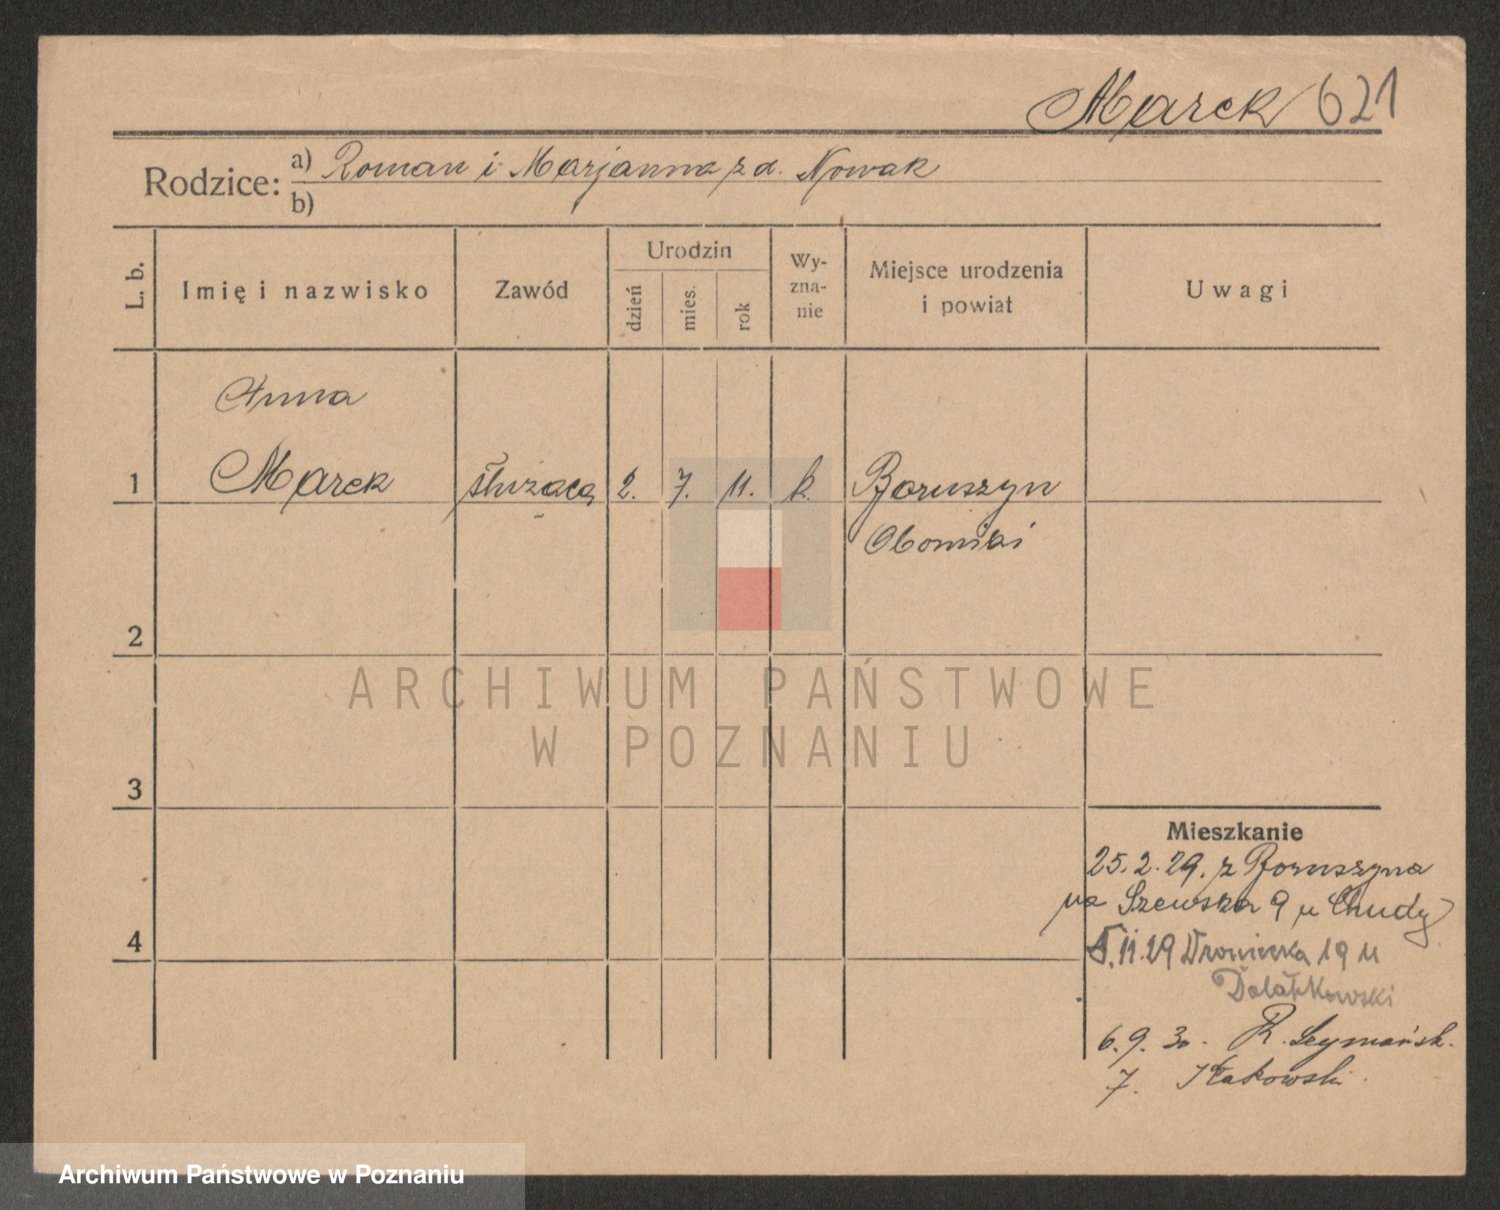 Marek 621
Rodzice: a) Roman i Marjanna z d. Nowak
b)
L. b.
Imię i nazwisko
Zawód
Urodzin
dzień
mies.
rok
Wy-
zna-
nie
Miejsce urodzenia
i powiat
Uwagi
Anna
1 Marek służąca 2. 7. 11. k. Boruszyn
Oborniki
2
3
4
ARCHIWUM PAŃSTWOWE
W POZNANIU
Mieszkanie
25.2.29. z Boruszyna
na Szewska 9 u Chudy
11.29 Wroniecka 19 u
6.9.30. R. Szymańsk.
7.
Archiwum Państwowe w Poznaniu